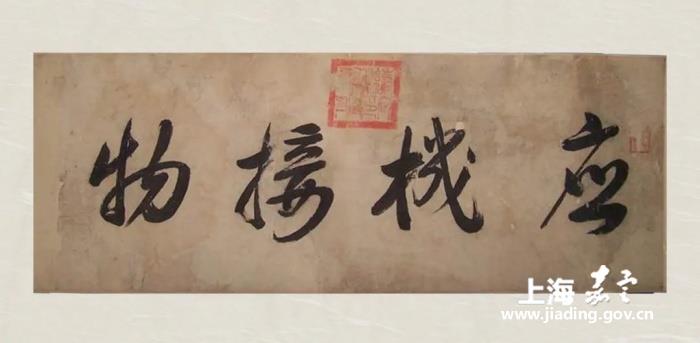 應機接物
上海嘉定
www.jiading.gov.cn